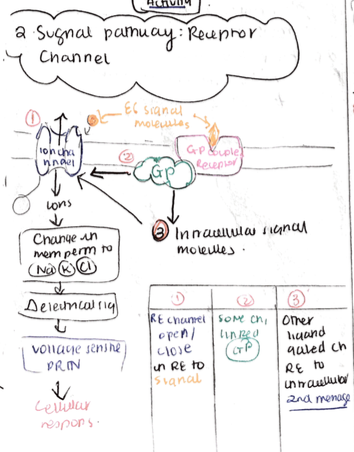 Activity
2. Signal pathway: Receptor
Channel
EC signal
molecules
1
ion cha
nnel
2
GP
GP couple
Receptor
ions
3 Intracellular signal
molecules.
Change in
mem perm to
Na K Cl
Δ electrical sig
voltage sensitive
PRTN
Cellular
respons.
1
RE channel
open/
close
in RE to
signal
2
some ch,
linked
GP
3
Other
ligand
gated ch
RE to
intracellular
2nd message